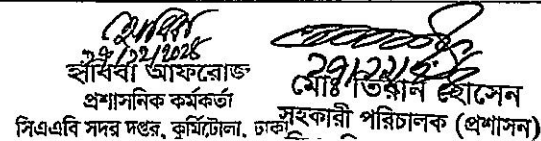 ২৯/১২/২০২৪
হাবিবা আফরোজ
প্রশাসনিক কর্মকর্তা
সিএএবি সদর দপ্তর, কুর্মিটোলা, ঢাকা
২৯/১২/২৪
মোঃ হোসেন
সহকারী পরিচালক (প্রশাসন)